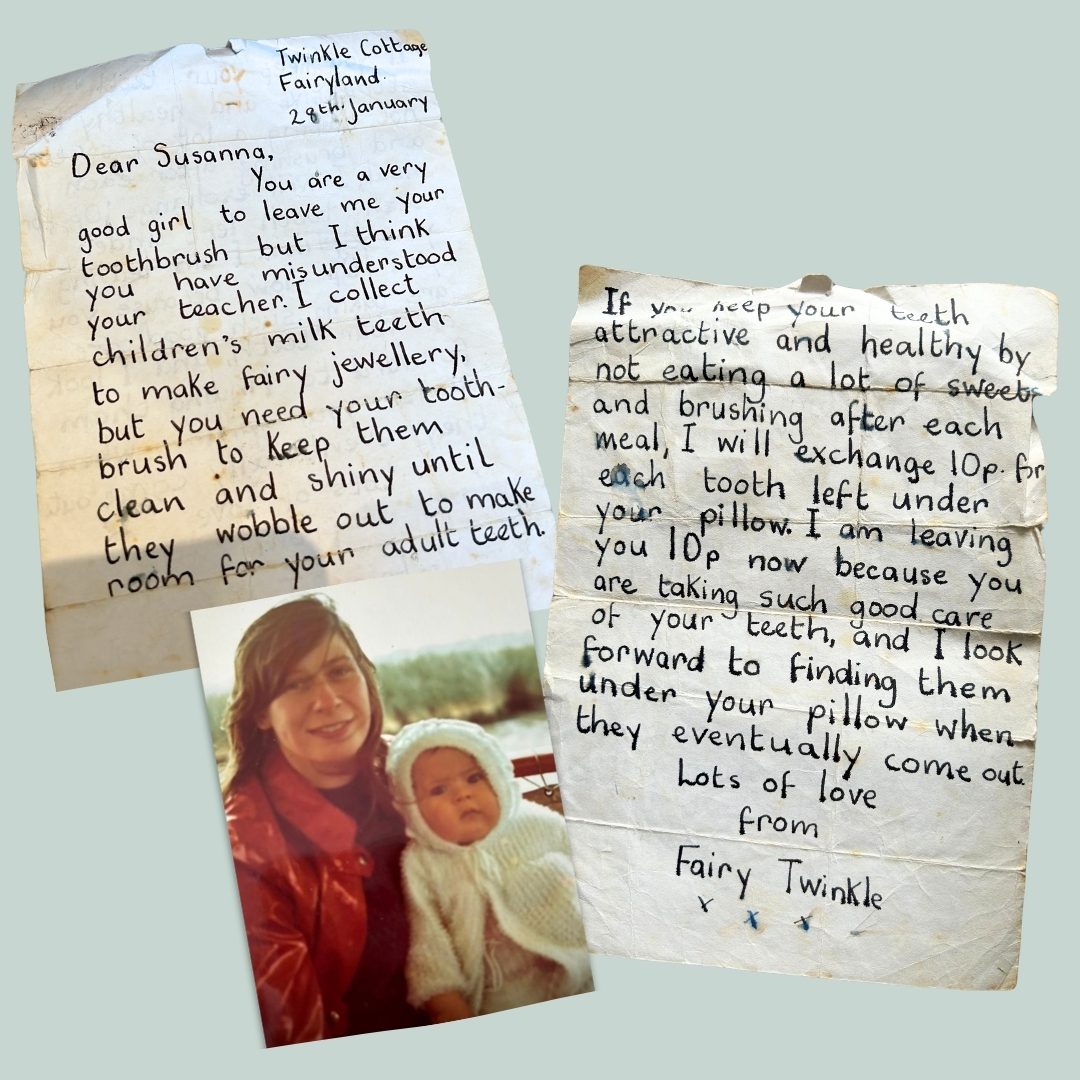 Twinkle Cottage
Fairyland.
28th. January
Dear Susanna,
You are a very
good girl to leave me your
toothbrush but I think
you have misunderstood
your teacher. I collect
children's milk teeth
to make fairy jewellery,
but you need your tooth-
brush to keep them
clean and shiny until
they wobble out to make
room for your adult teeth.
If you keep your teeth
attractive and healthy by
not eating a lot of sweets
and brushing after each
meal, I will exchange 10p. for
each tooth left under
your pillow. I am leaving
you 10p now because you
are taking such good care
of your teeth, and I look
forward to finding them
under your pillow when
they eventually come out.
Lots of love
from
Fairy Twinkle
x x x